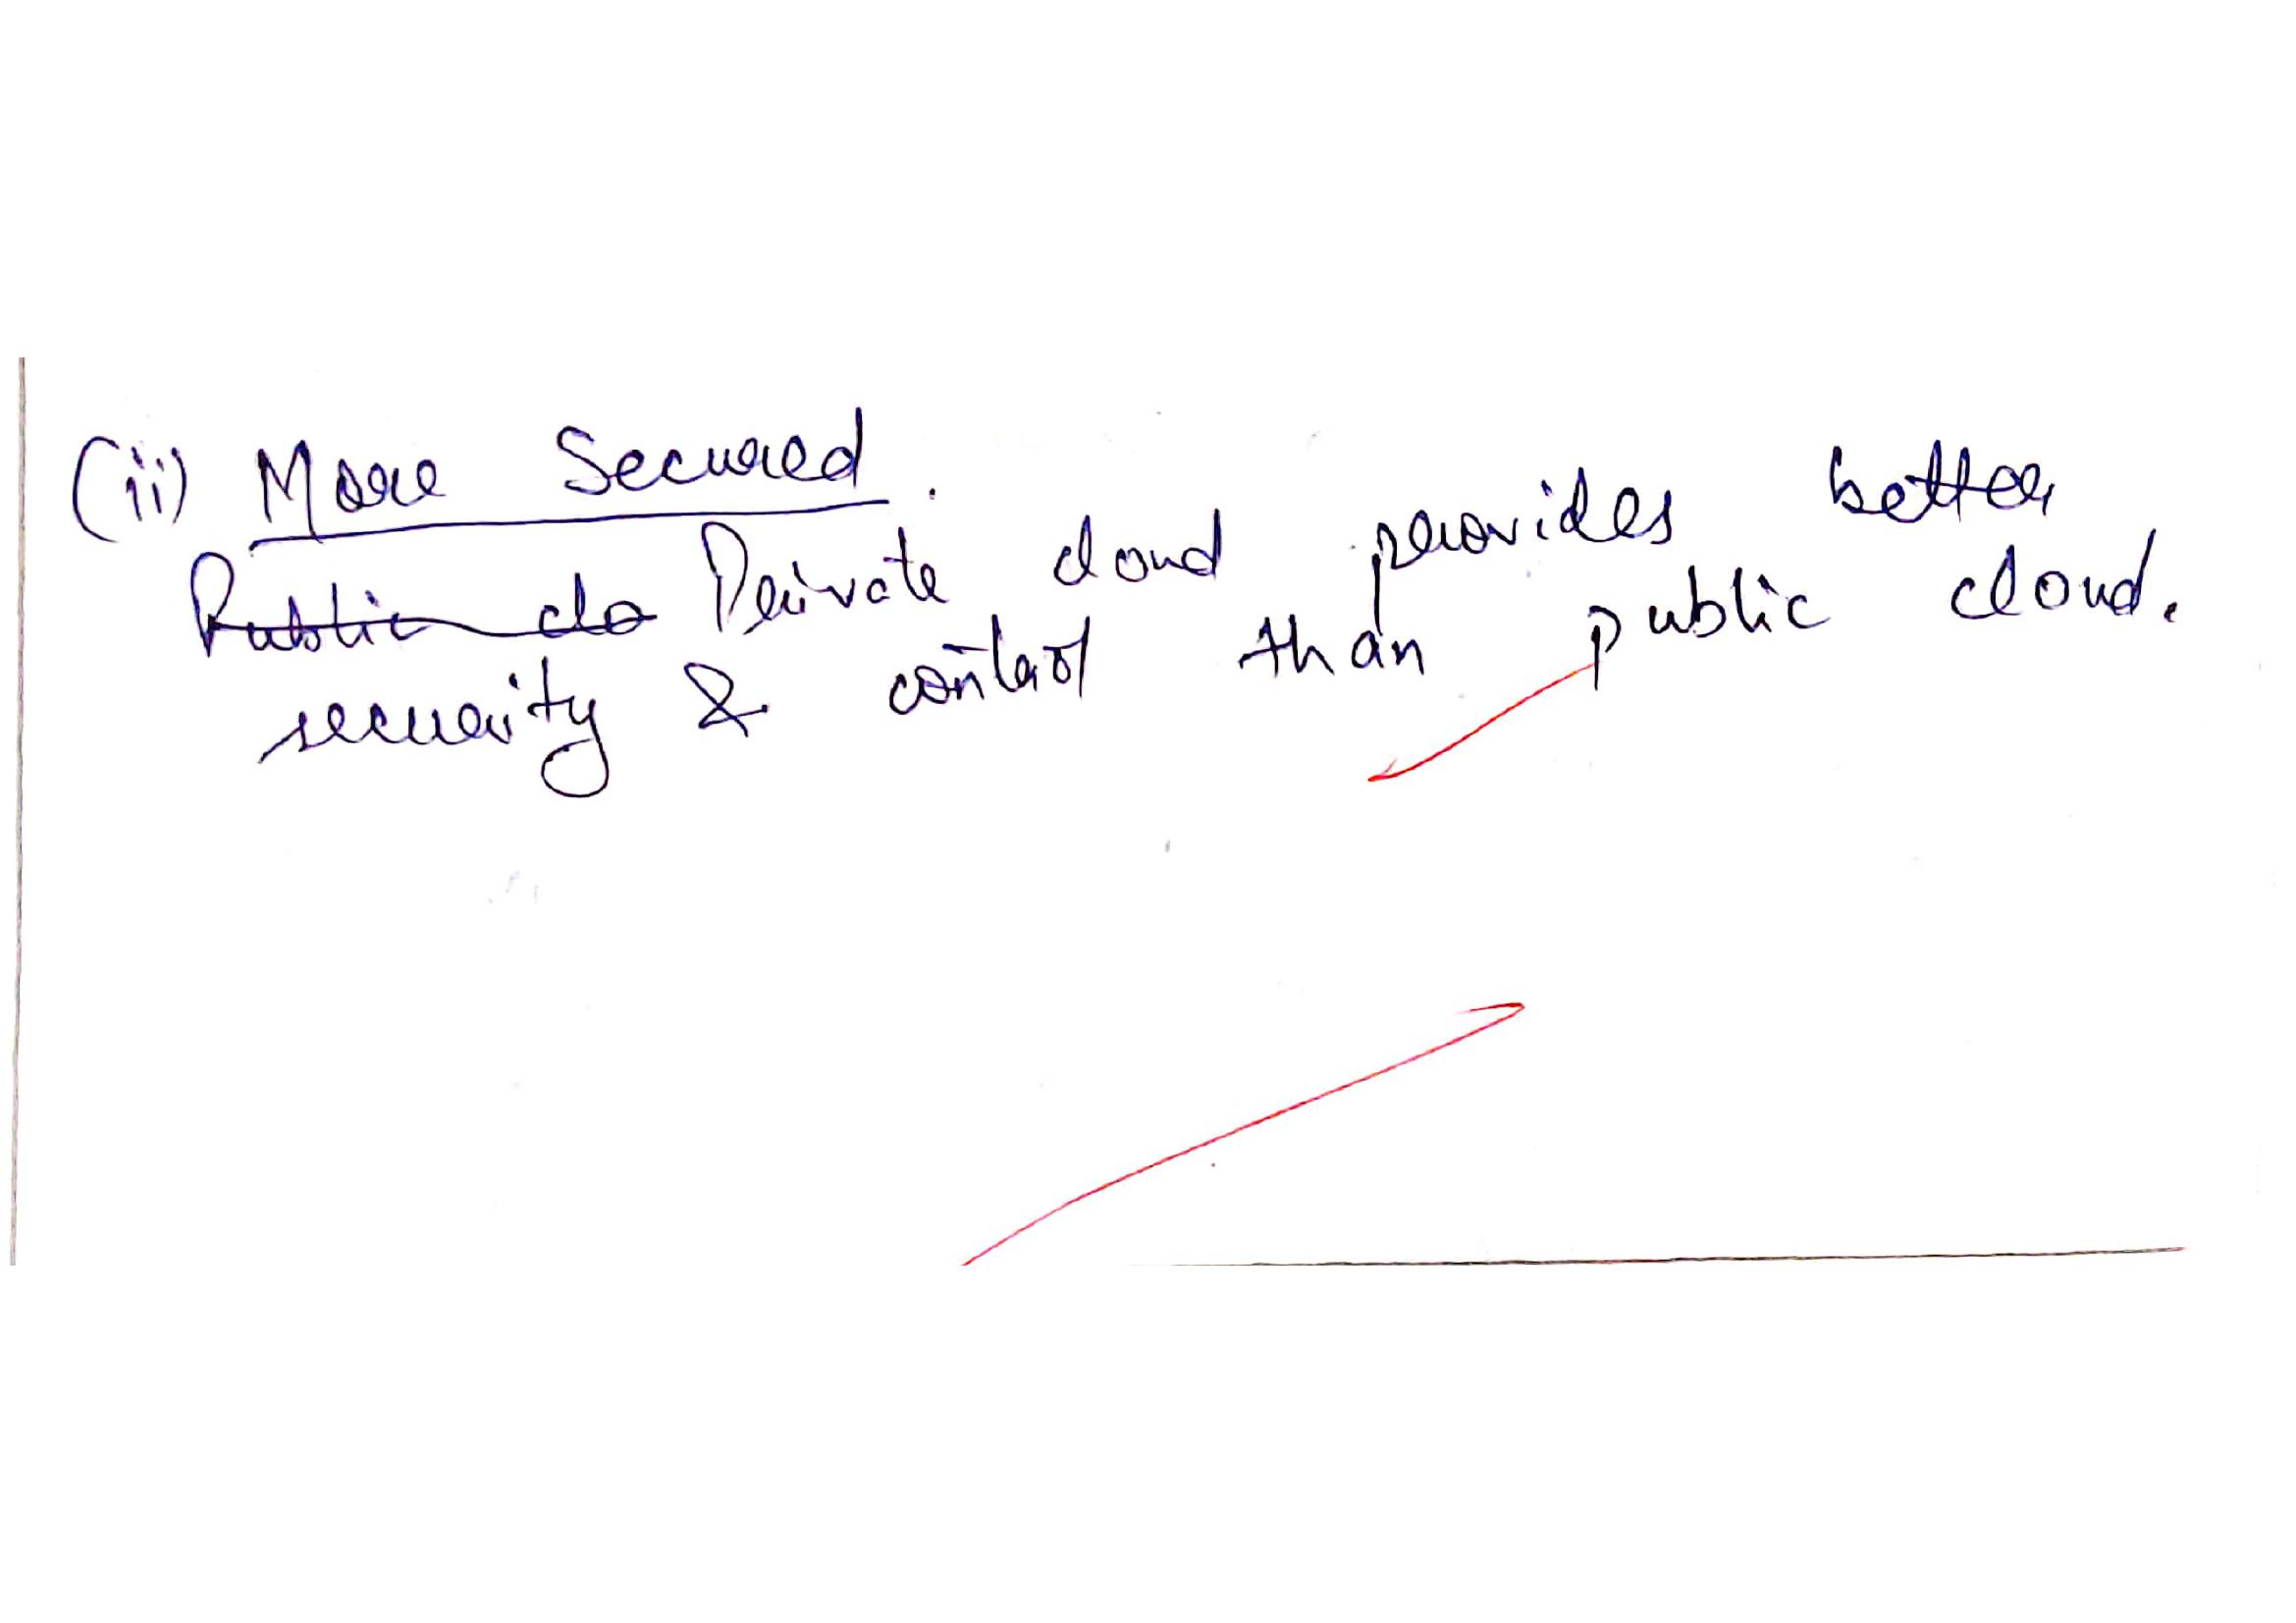 (ii) More Secured.
Public clo Private cloud provides better
security & control than public cloud.